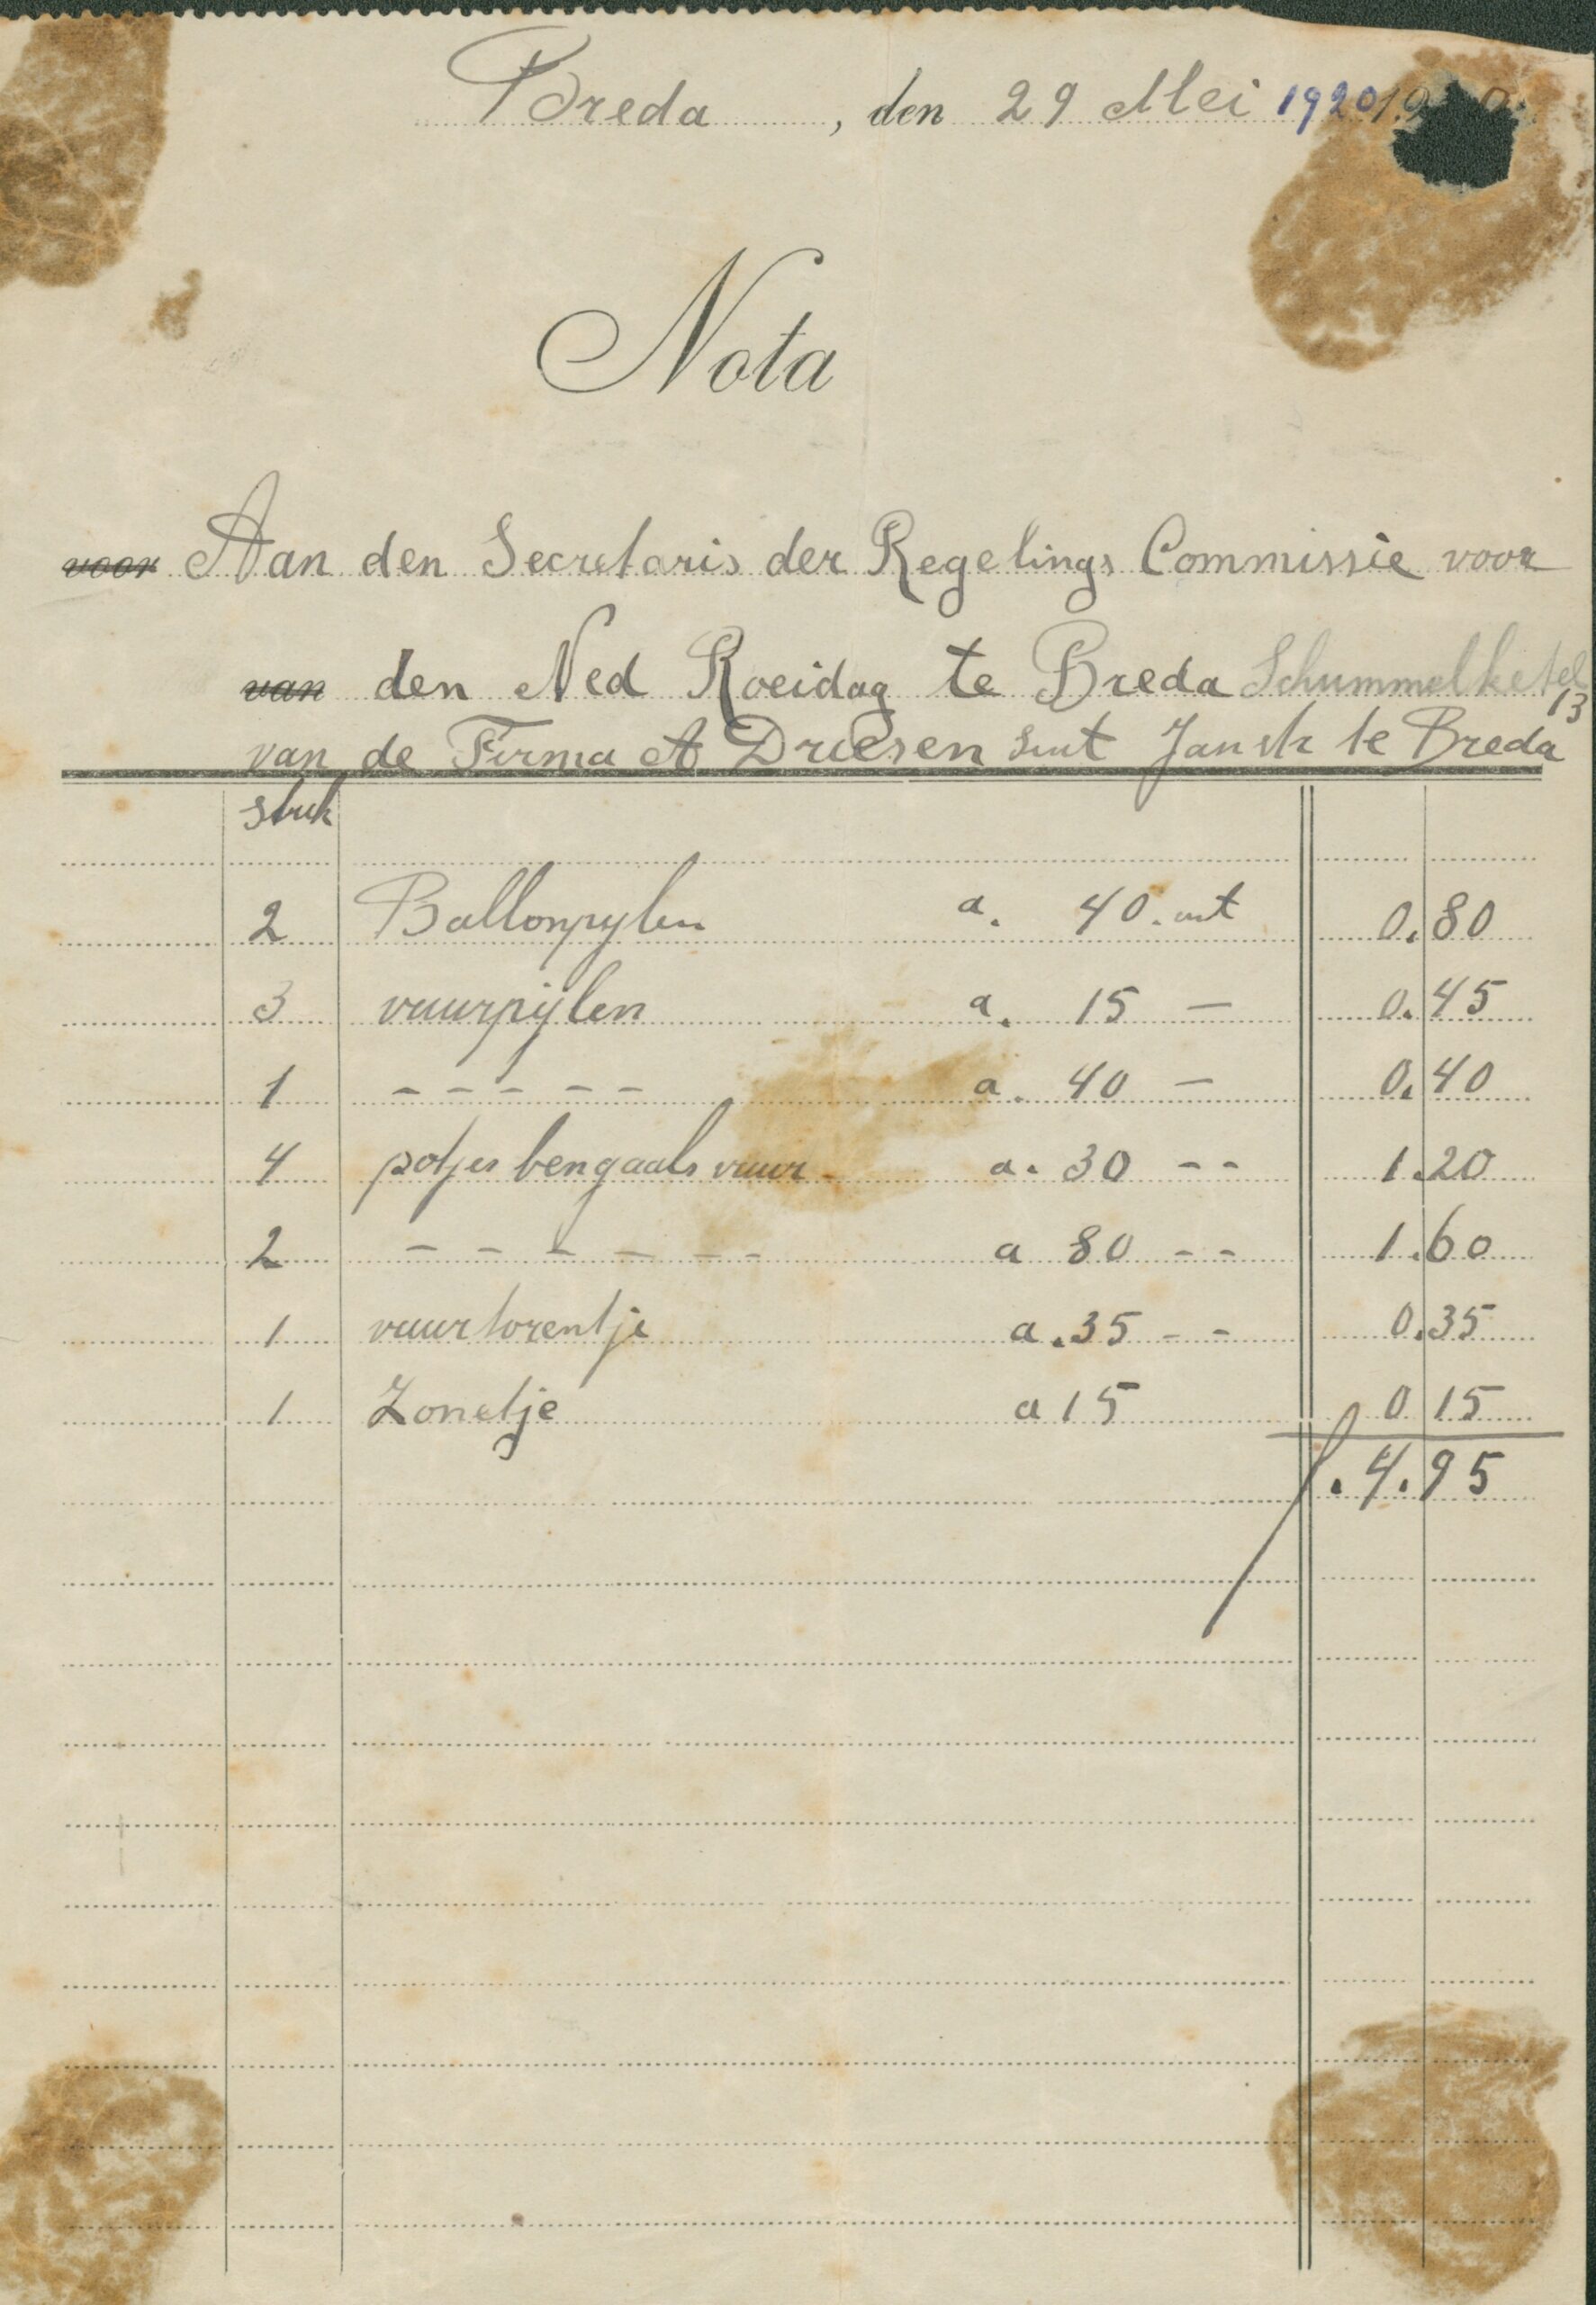 Breda, den 29 Mei 1920 19
Nota
voor Aan den Secretaris der Regelings Commissie voor
van den Ned Roeidag te Breda Schummelketel
13
van de Firma A Driesen Sint Janstr te Breda
stuk
2 Ballonpylen a. 40. cnt 0.80
3 vuurpijlen a. 15 — 0.45
1 - - - - - a. 40 — 0.40
4 potjes bengaals vuur a. 30 - - 1.20
2 - - - - - - a 80 - - 1.60
1 vuurtorentje a. 35 - - 0.35
1 Zonetje a 15 0 15
f. 4.95